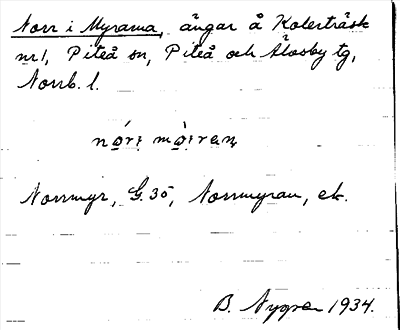 Norr i Myrarna, ängar å Kolerträsk
nr 1, Piteå sn, Piteå och Älvsby tg,
Norrb. l.
Norrmyr, G. 35, Norrmyran, ek.
B. Nygren 1934.